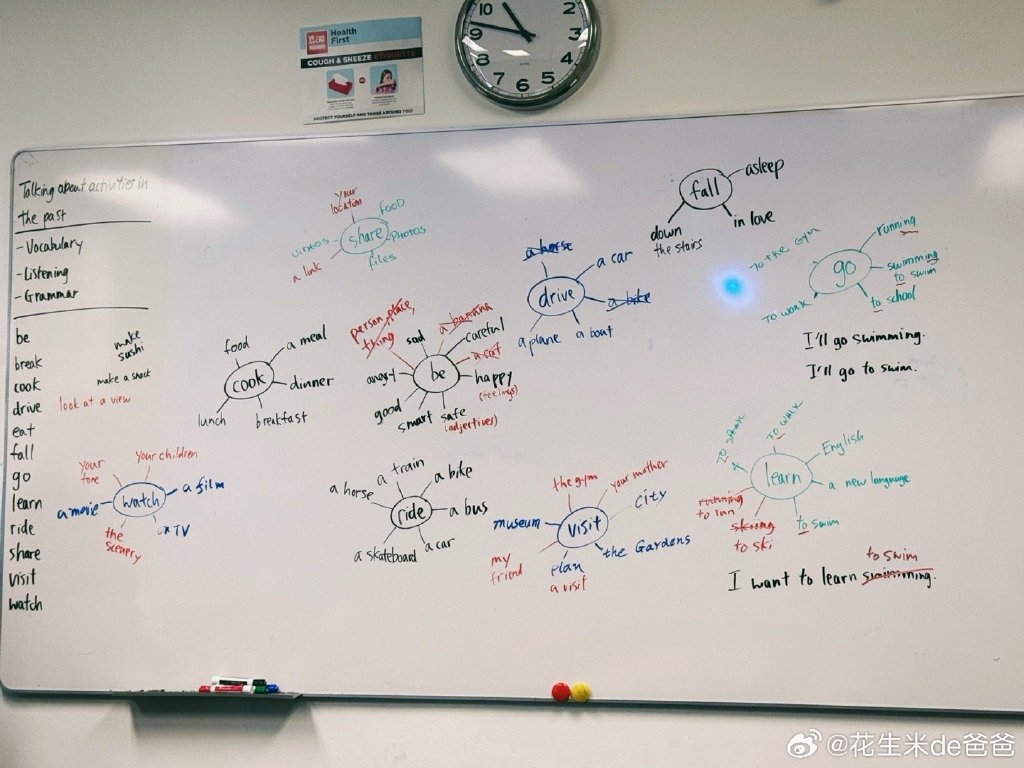 Health
First
COUGH & SNEEZE ETIQUETTE
OR
PROTECT YOURSELF AND THOSE AROUND YOU!
10
2
9
3
8
4
7
6
5
Talking about activities in
the past
-Vocabulary
-Listening
-Grammar
be
break
cook
drive
eat
fall
go
learn
ride
share
visit
watch
make
sushi
make a snack
look at a view
your
location
FOOD
VIDEOS
share
PHOTOS
a link
files
food
a meal
cook
dinner
lunch
breakfast
person, place,
thing
sad
a banana
careful
a cat
angry
be
happy
(feelings)
good
smart
safe
(adjectives)
a horse
a car
drive
a bike
a plane
a boat
fall
asleep
down
the stairs
in love
TO THE GYM
running
go
swimming
to swim
TO WORK
to school
I'll go swimming.
I'll go to swim.
your
your children
a movie
watch
a film
the
scenery
TV
a horse
a train
a bike
ride
a bus
a skateboard
a car
the gym
your mother
museum
visit
city
my
friend
plan
a visit
the Gardens
TO WALK
English
learn
a new language
running
to run
to swim
to ski
to swim
I want to learn swimming.
@花生米de爸爸